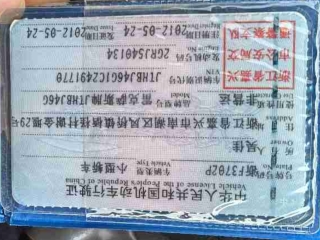 中华人民共和国机动车行驶证
Vehicle License of the People's Republic of China
号牌号码 浙F3702P 车辆类型 小型轿车
Plate No. Vehicle Type
所有人 吴佳
Owner
住址 浙江省嘉兴市南湖区凤桥镇 29号
Address
使用性质 非营运 品牌型号 雷克萨斯牌 JTHBJ46G
Use Character Model
浙江省嘉兴市公安局交通警察支队
车辆识别代号 JTHBJ46G1C2491770
VIN
发动机号码 2GRJ540134
Engine No.
注册日期 2012-05-24 发证日期 2012-05-24
Register Date Issue Date